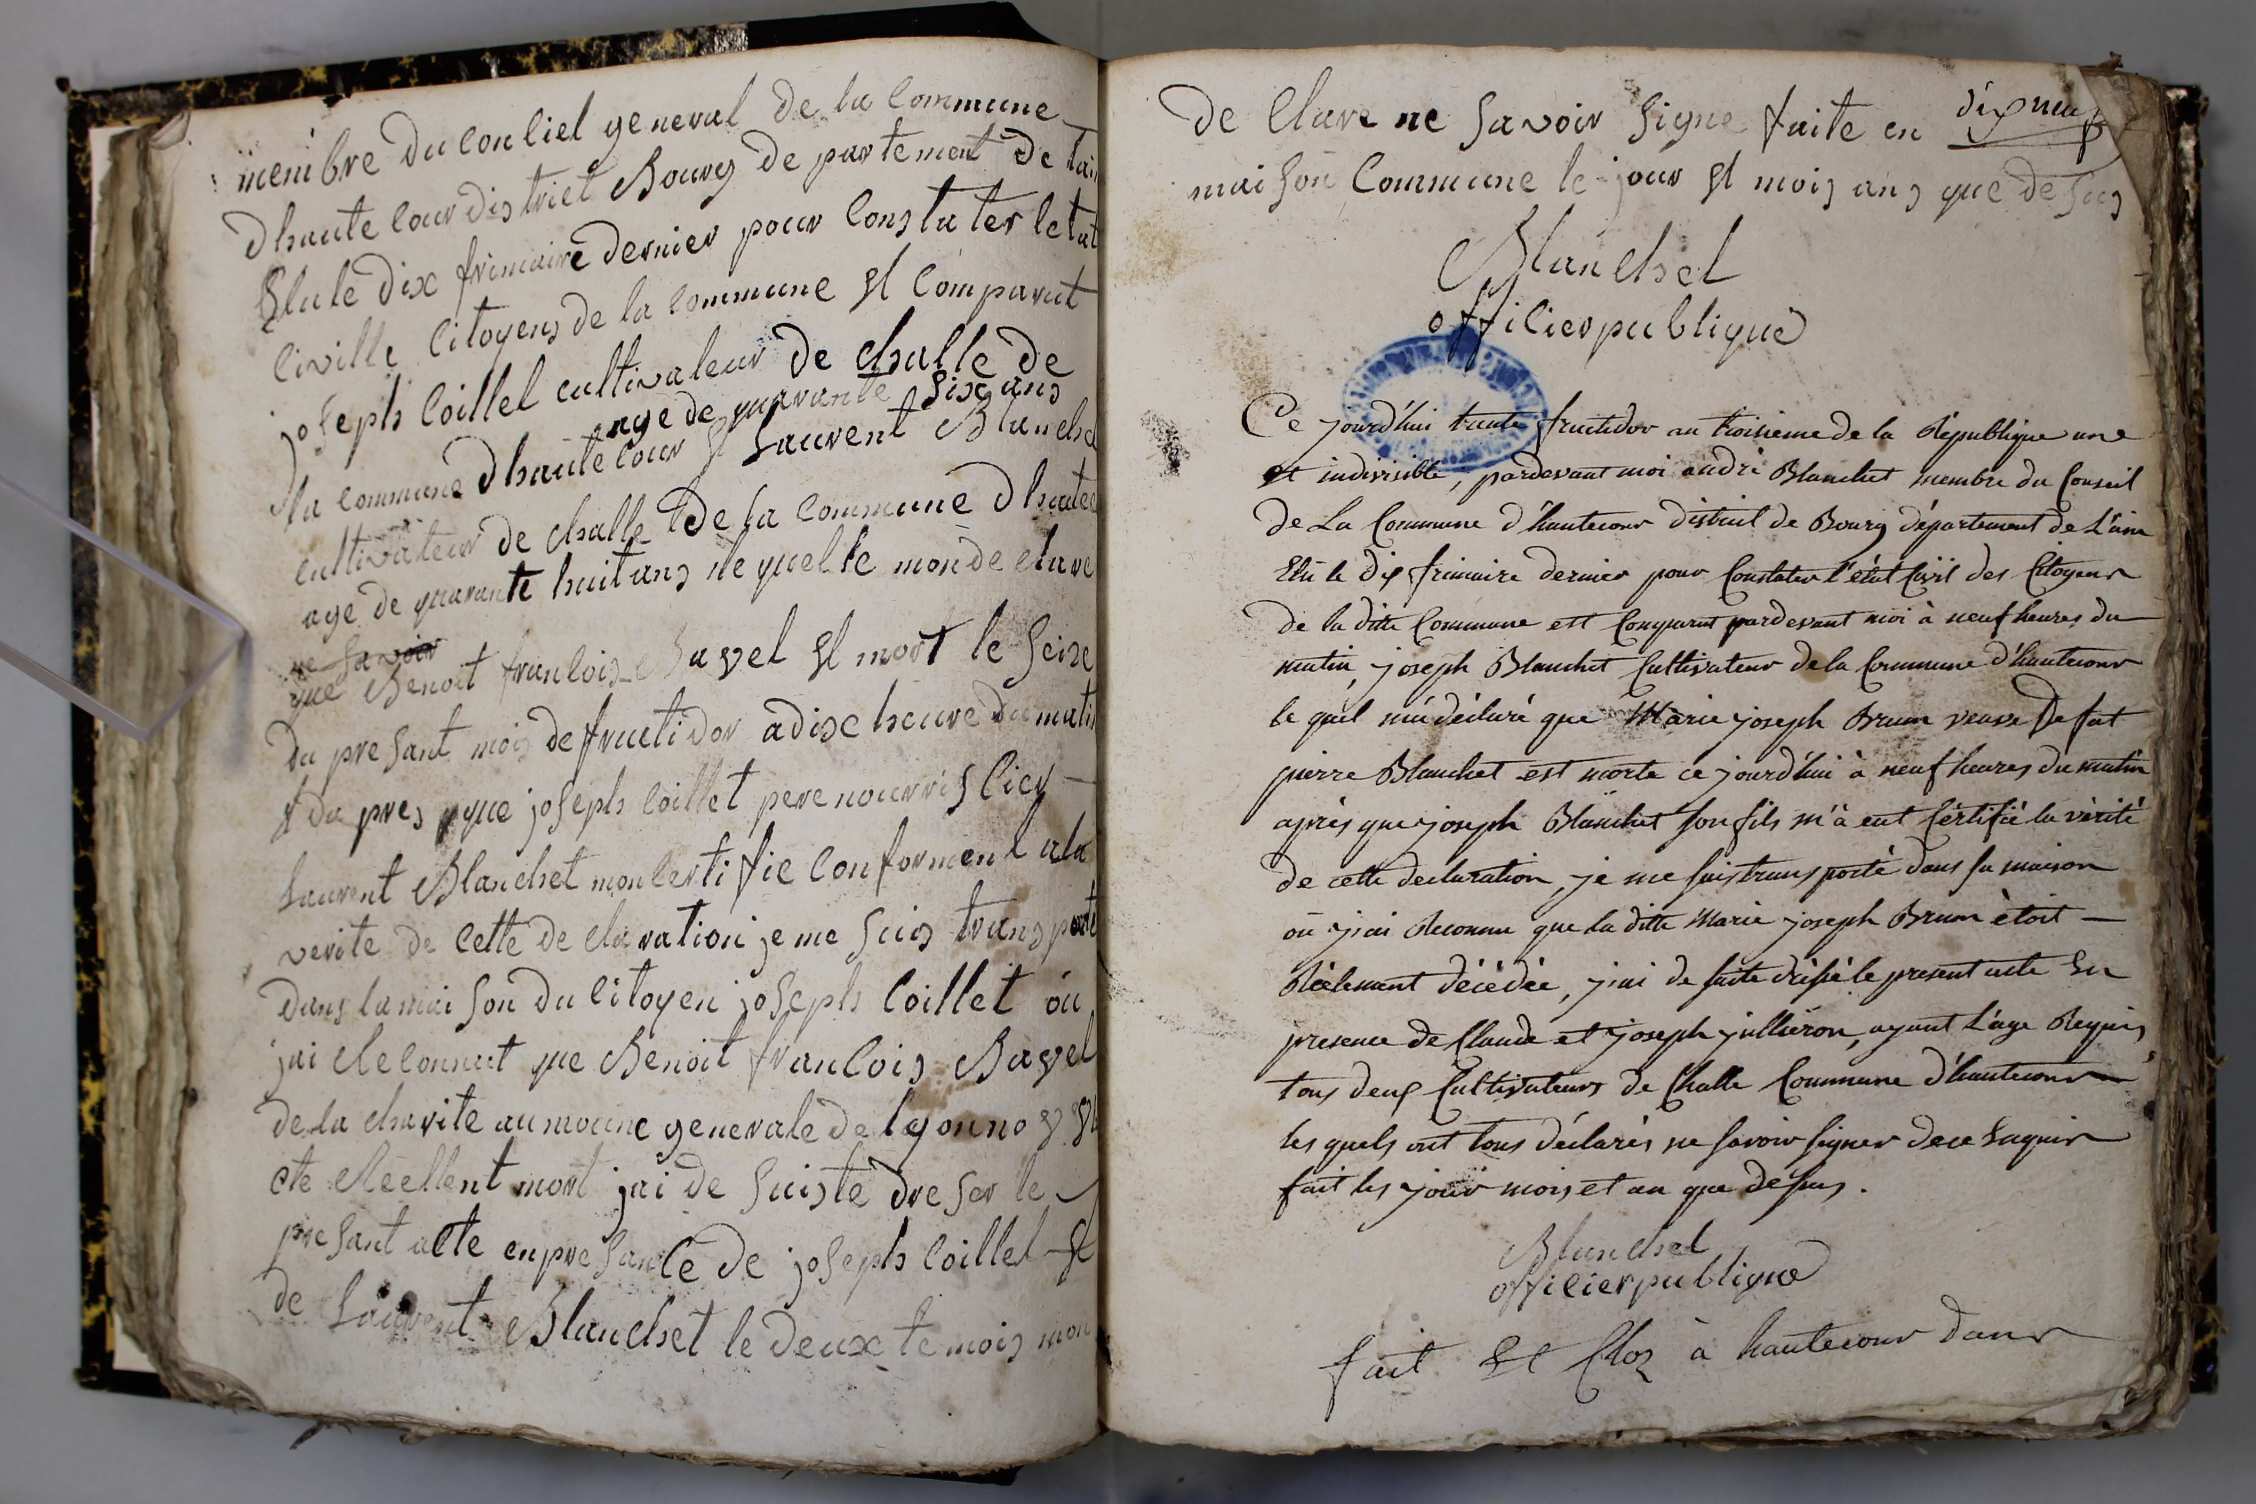 membre du Conliel general de la Commune
Dhaute Cour district Bourg de partement de lain
Elu le dix frimaire dernier pour Constater letat
Civille Citoyens de la Commune Et Comparut
joseph Coillet cultivateur de challe de
age de quarante Six ans
la commune Dhaute Cour Et Laurent Blanche
cultivateur de challe de la Commune Dhaute
age de quarante huit ans le quelle monde clare
ne savoir
que Benoit francois Bavel Et mort le Seize
du presant mois de fructidor a dixe heure du matin
& Da pres que joseph Coillet pere nourris Cier
Laurent Blanchet mon Certi fie Conforment a la
verite de Cette de claration je me suis trans porte
dans la mai son du Citoyen joseph Coillet ou
jai Reconnut que Benoit francois Bavel
de la charite aumoune generale de lyon no
ete Reellent mort jai de suiste dre ser le
presant acte en pre sance de joseph Coillet Et
de Laurent Blanchet le deux te mois mon
de Clare ne Savoir Signe faite en
dix neuf
maison Commune le jour Et mois ans que de sus
Blanchet
officier publique
Ce jourd'hui trente fructidor an troisieme de la République une
et indivisible, pardevant moi andré Blanchet membre du Conseil
de La Commune d'hautecour district de Bourg département de L'ain
Elû le dix frimaire dernier pour Constater l'état Civil des Citoyens
de la ditte Commune est Comparut pardevant moi à neuf heures du
matin, joseph Blanchet Cultivateur de la Commune d'hautecour
le quel m'a déclaré que Marie joseph Brun veuve De fut
pierre Blanchet est morte ce jourd'hui à neuf heures du matin
après que joseph Blanchet son fils m'a eut Certifié la vérité
de cette declaration, je me suis transporté dans sa maison
où j'ai Reconnu que la ditte Marie joseph Brun étoit
Réelement décédée, j'ai de suite dressé le present acte En
presence de Claude et joseph jullieron, ayant L'age Requis,
tous deux Cultivateurs de Challe Commune d'hautecour
les quels ont tous déclarés ne savoir signer de ce Enquis
fait les jour mois et an que dessus.
Blanchet
officier publique
fait Et Clos à hautecour dans